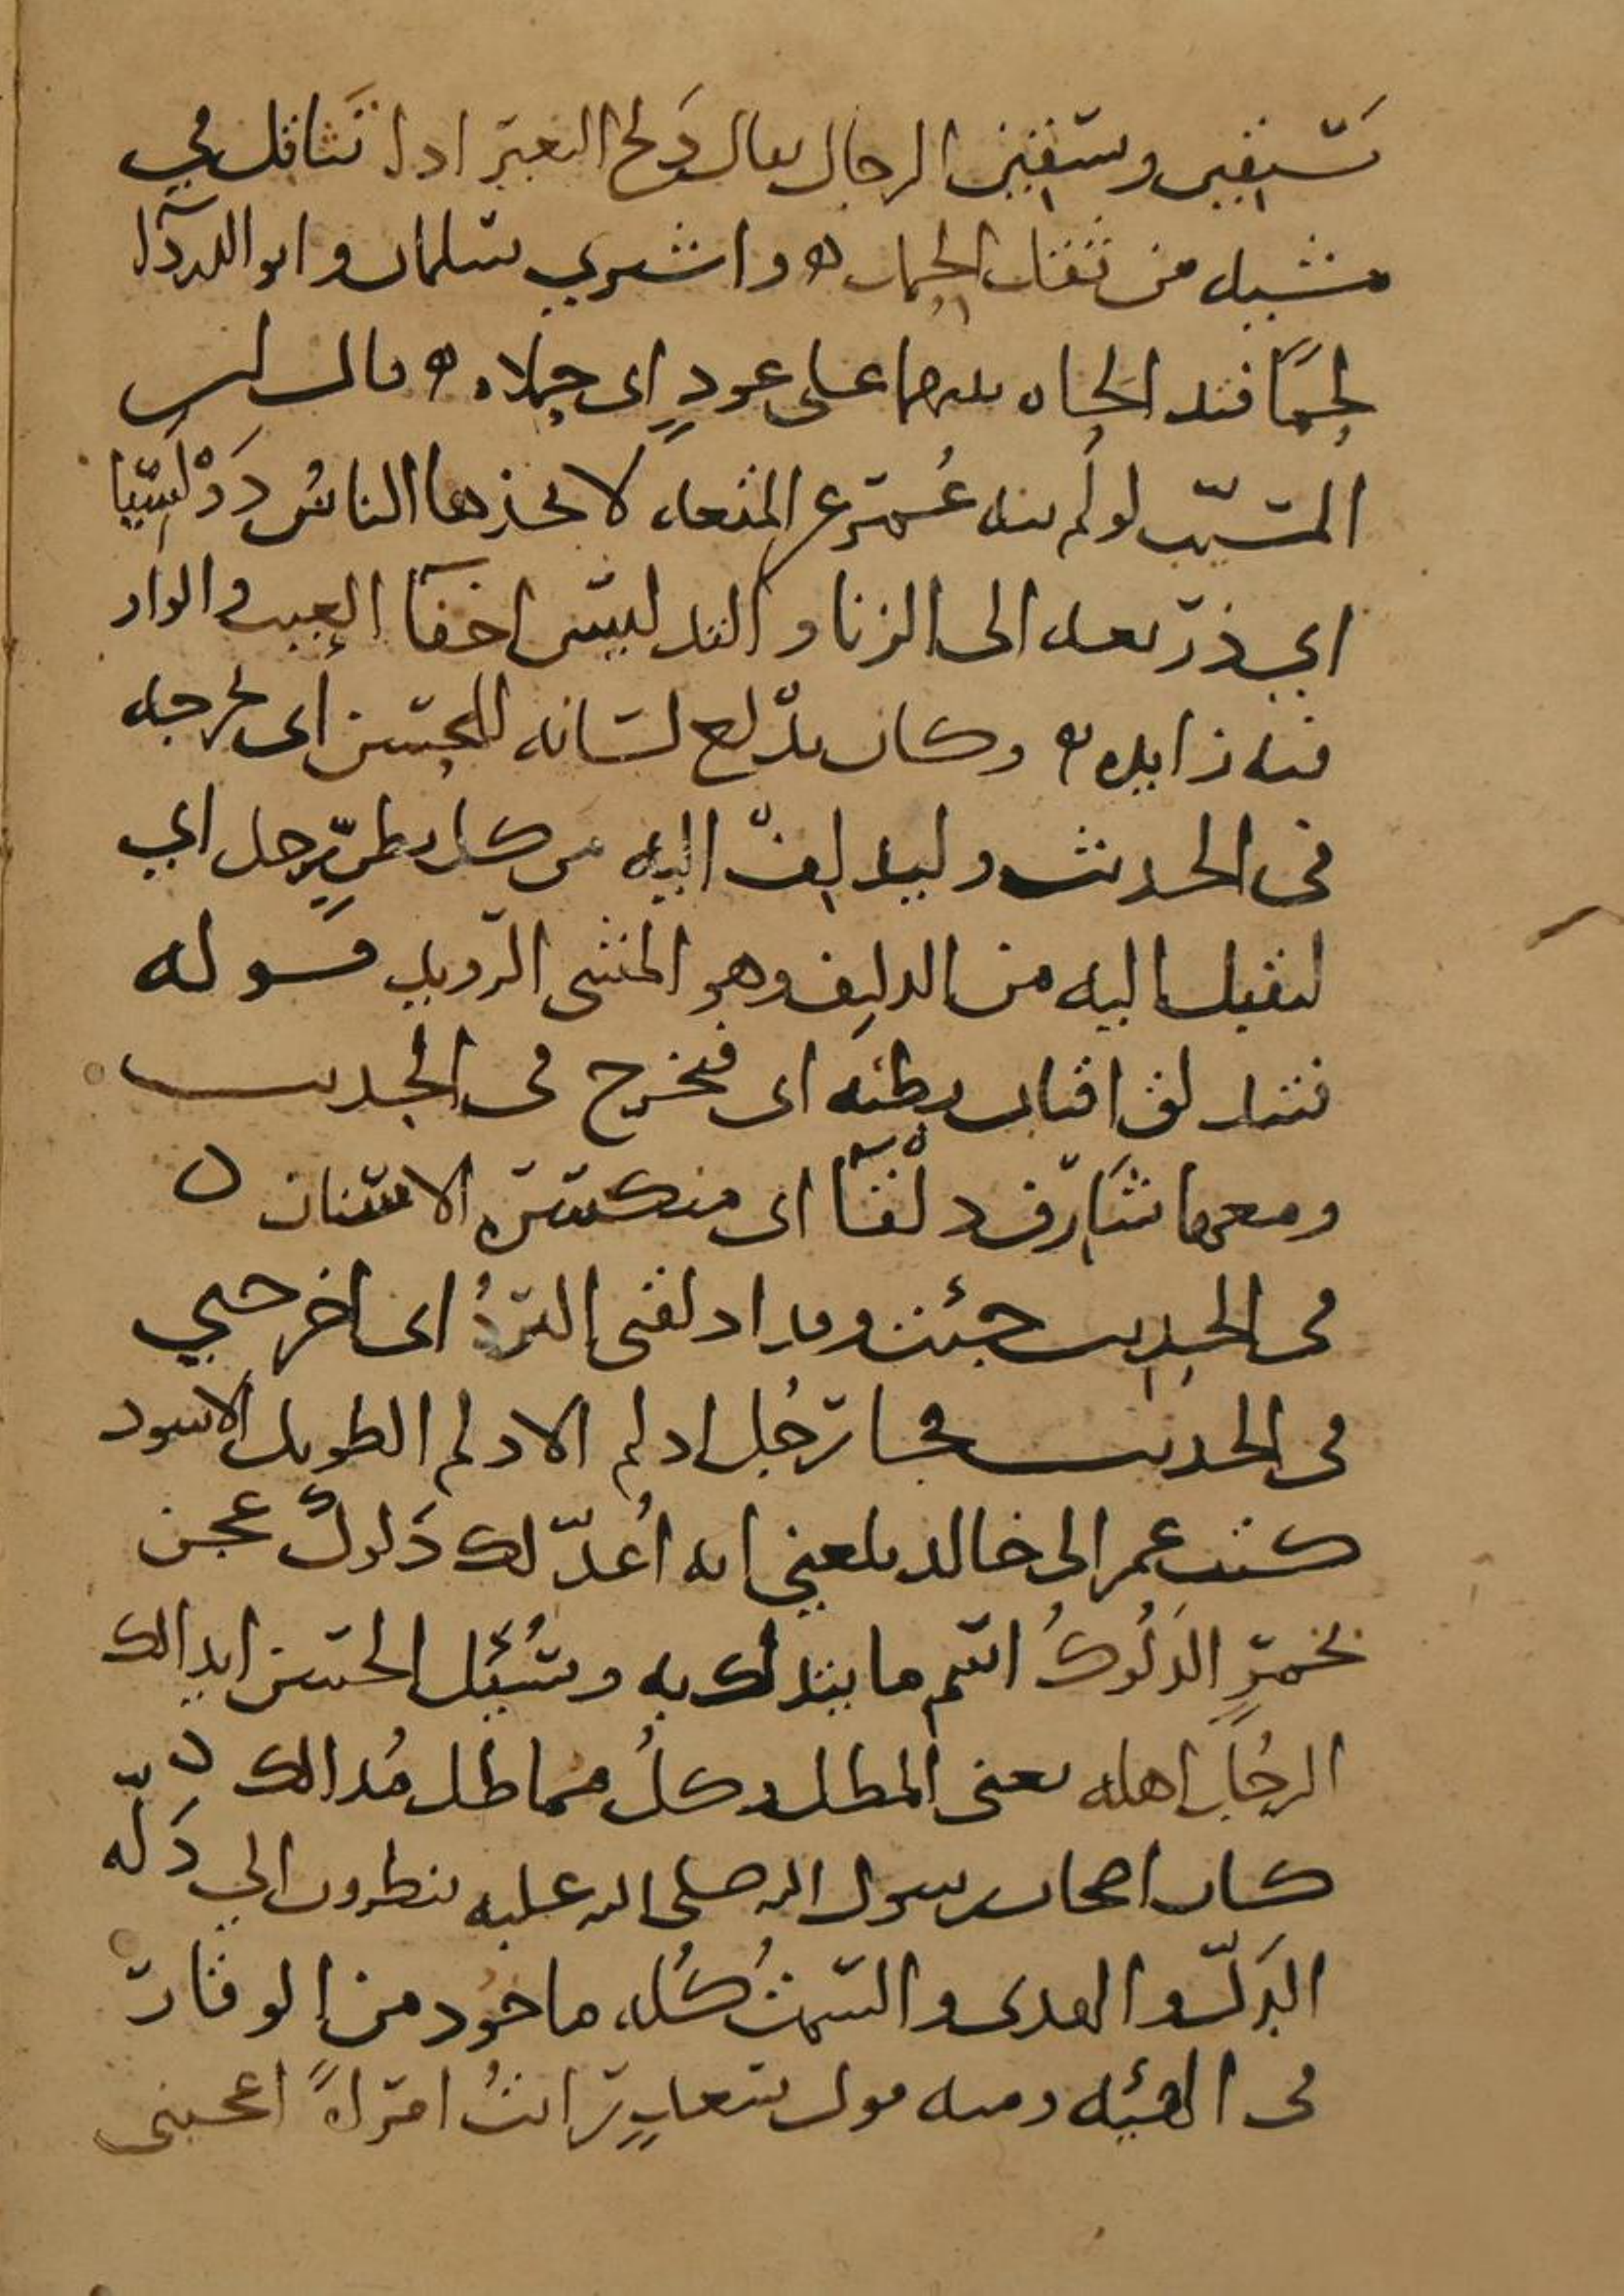 يستقين ويسقين الرجال يقال دلح البعير اذا تثاقل في
مشيه من ثقل الحمل ه واشترى سلمان وابو الدردآ
لحمًا فتدالحاه بينهما على عودٍ اى حملاه ه قال ابن
المسيّب لو لم ينه عُمر عن المتعه لاتخذها الناسُ دَوْلَسيّا
اي ذريعه الى الزنا والتدليس اخفآ العيب والواو
فيه زايده ه وكان يدلع لسَانه للحسن أى يخرجه
فى الحديث وليدلِف اليه من كل بطنٍ رجل اي
ليقبل اليه من الدليف وهو المشى الرويد قوله
فتندلق اقتاب بطنِه اى فتخرج فى الحديث
ومعها شارف دلْقآ اى منكسرة الاسنان ه
فى الحديث جئت وقد ادلقنى البردُ اى اخرجني
فى الحديث فجا رجُل ادلم الادلم الطويل الاسود
كتب عمر الى خالد بلغني انه اُعدّ لك دَلوكٌ عجن
بخمرٍ الدَلُوكُ اسم ما يتدلك به وسُئِل الحسن ايدالك
الرجُل اهله يعنى المطل وكلُ مماطل مُدالك ه
كان اصحاب رسول الله صلى الله عليه ينظرون الي دَلّه
الدَلّ والهدى والسمتُ كُله ماخوذ من الوقار
فى الهيئه ومنه قول سعدٍ رايتُ امراةً اعجبتنى